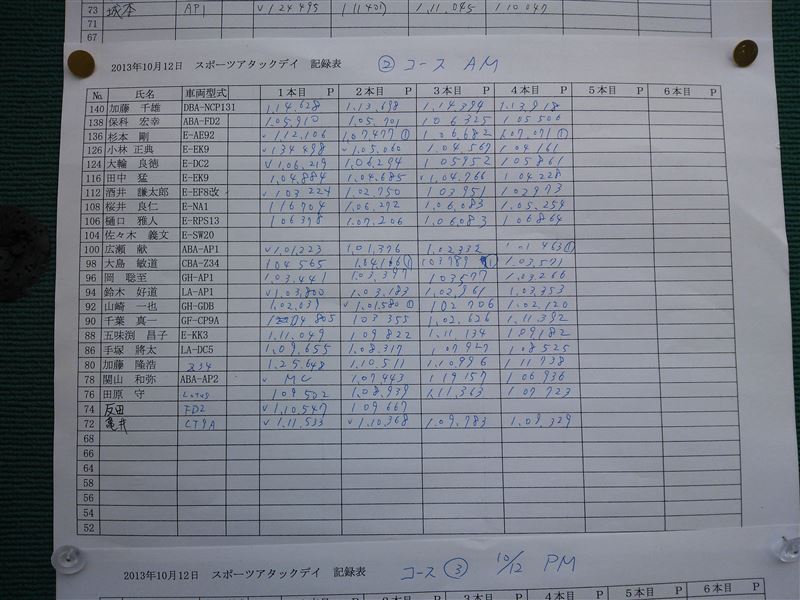 73 城本 AP1 ✓124495 111401 1.11.045 110047
67
2013年10月12日 スポーツアタックデイ 記録表 ②コース AM
№ 氏名 車両型式 1本目 P 2本目 P 3本目 P 4本目 P 5本目 P 6本目 P
140 加藤 千雄 DBA-NCP131 1.14.628 1.13.698 1.14.394 1.13.918
138 保科 宏幸 ABA-FD2 1.05.910 1.05.701 106325 105506
136 杉本 剛 E-AE92 ✓112.106 1.07.477① 1.06.682 1.07.071①
126 小林 正典 E-EK9 ✓134498 ✓1.05.060 1.04.567 104161
124 大輪 良徳 E-DC2 ✓1.06.219 1.06.294 105952 105861
116 田中 猛 E-EK9 1.04.884 1.04.685 ✓1.04.766 104228
112 酒井 謙太郎 E-EF8改 ✓103224 1.02.750 103951 102973
108 桜井 良仁 E-NA1 116704 1.06.272 1.06.083 1.05.254
106 樋口 雅人 E-RPS13 106378 1.07.206 1.06.083 106864
104 佐々木 義文 E-SW20
100 広瀬 献 ABA-AP1 ✓1.01.223 1.01.376 1.02.332 101463①
98 大島 敏道 CBA-Z34 104565 1.04.166① 103789① 1.03.571
96 岡 聡至 GH-AP1 1.03.441 1.03.397 103677 1.03.266
94 鈴木 好道 LA-AP1 ✓1.03.800 1.03.183 1.02.961 1.03.353
92 山崎 一也 GH-GDB 1.02.039 ✓1.01.580① 102706 1.02.120
90 千葉 真一 GF-CP9A 103355 1.02.626 1.11.392
88 五味渕 昌子 E-KK3 1.11.049 109822 1.11.134 109.182
86 手塚 將太 LA-DC5 1.09.655 1.08.317 107927 108525
80 加藤 隆浩 Z34 1.25.648 1.10.511 1.10.996 111738
78 関山 和弥 ABA-AP2 ✓MC 1.07.443 119157 106936
76 田原 守 Lotus 109502 1.08.939 1.11.363 107723
74 反田 FD2 ✓1.10.547 109667
72 亀井 CT9A ✓1.11.533 ✓1.10.368 1.09.783 1.09.329
68
66
64
64
58
56
54
52
2013年10月12日 スポーツアタックデイ 記録表 コース③ 10/12 PM
1本目 P 2本目 P 3本目 P 4本目 P 5本目 P 6本目 P